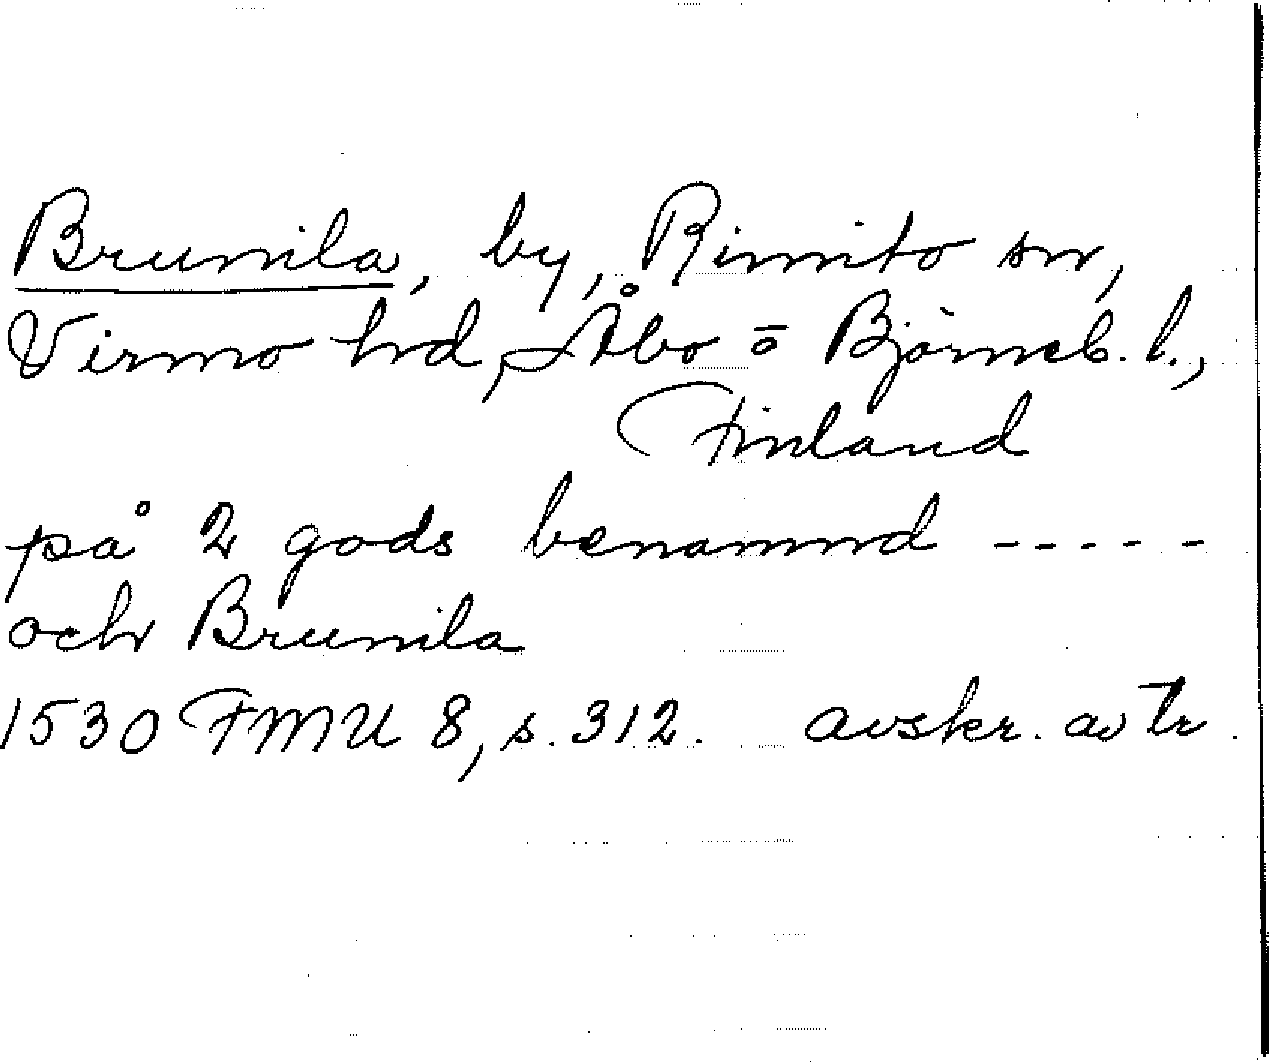 Brunila, by, Rimito sn,
Virmo hrd, Åbo o Björneb. l.,
Finland
på 2 gods benamnd - - - - -
och Brunila
1530 FMU 8, s. 312. avskr. av tr.